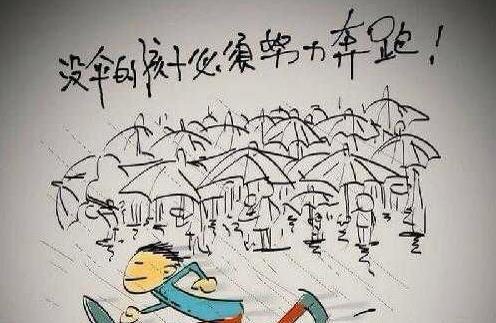 没伞的孩子必须努力奔跑！